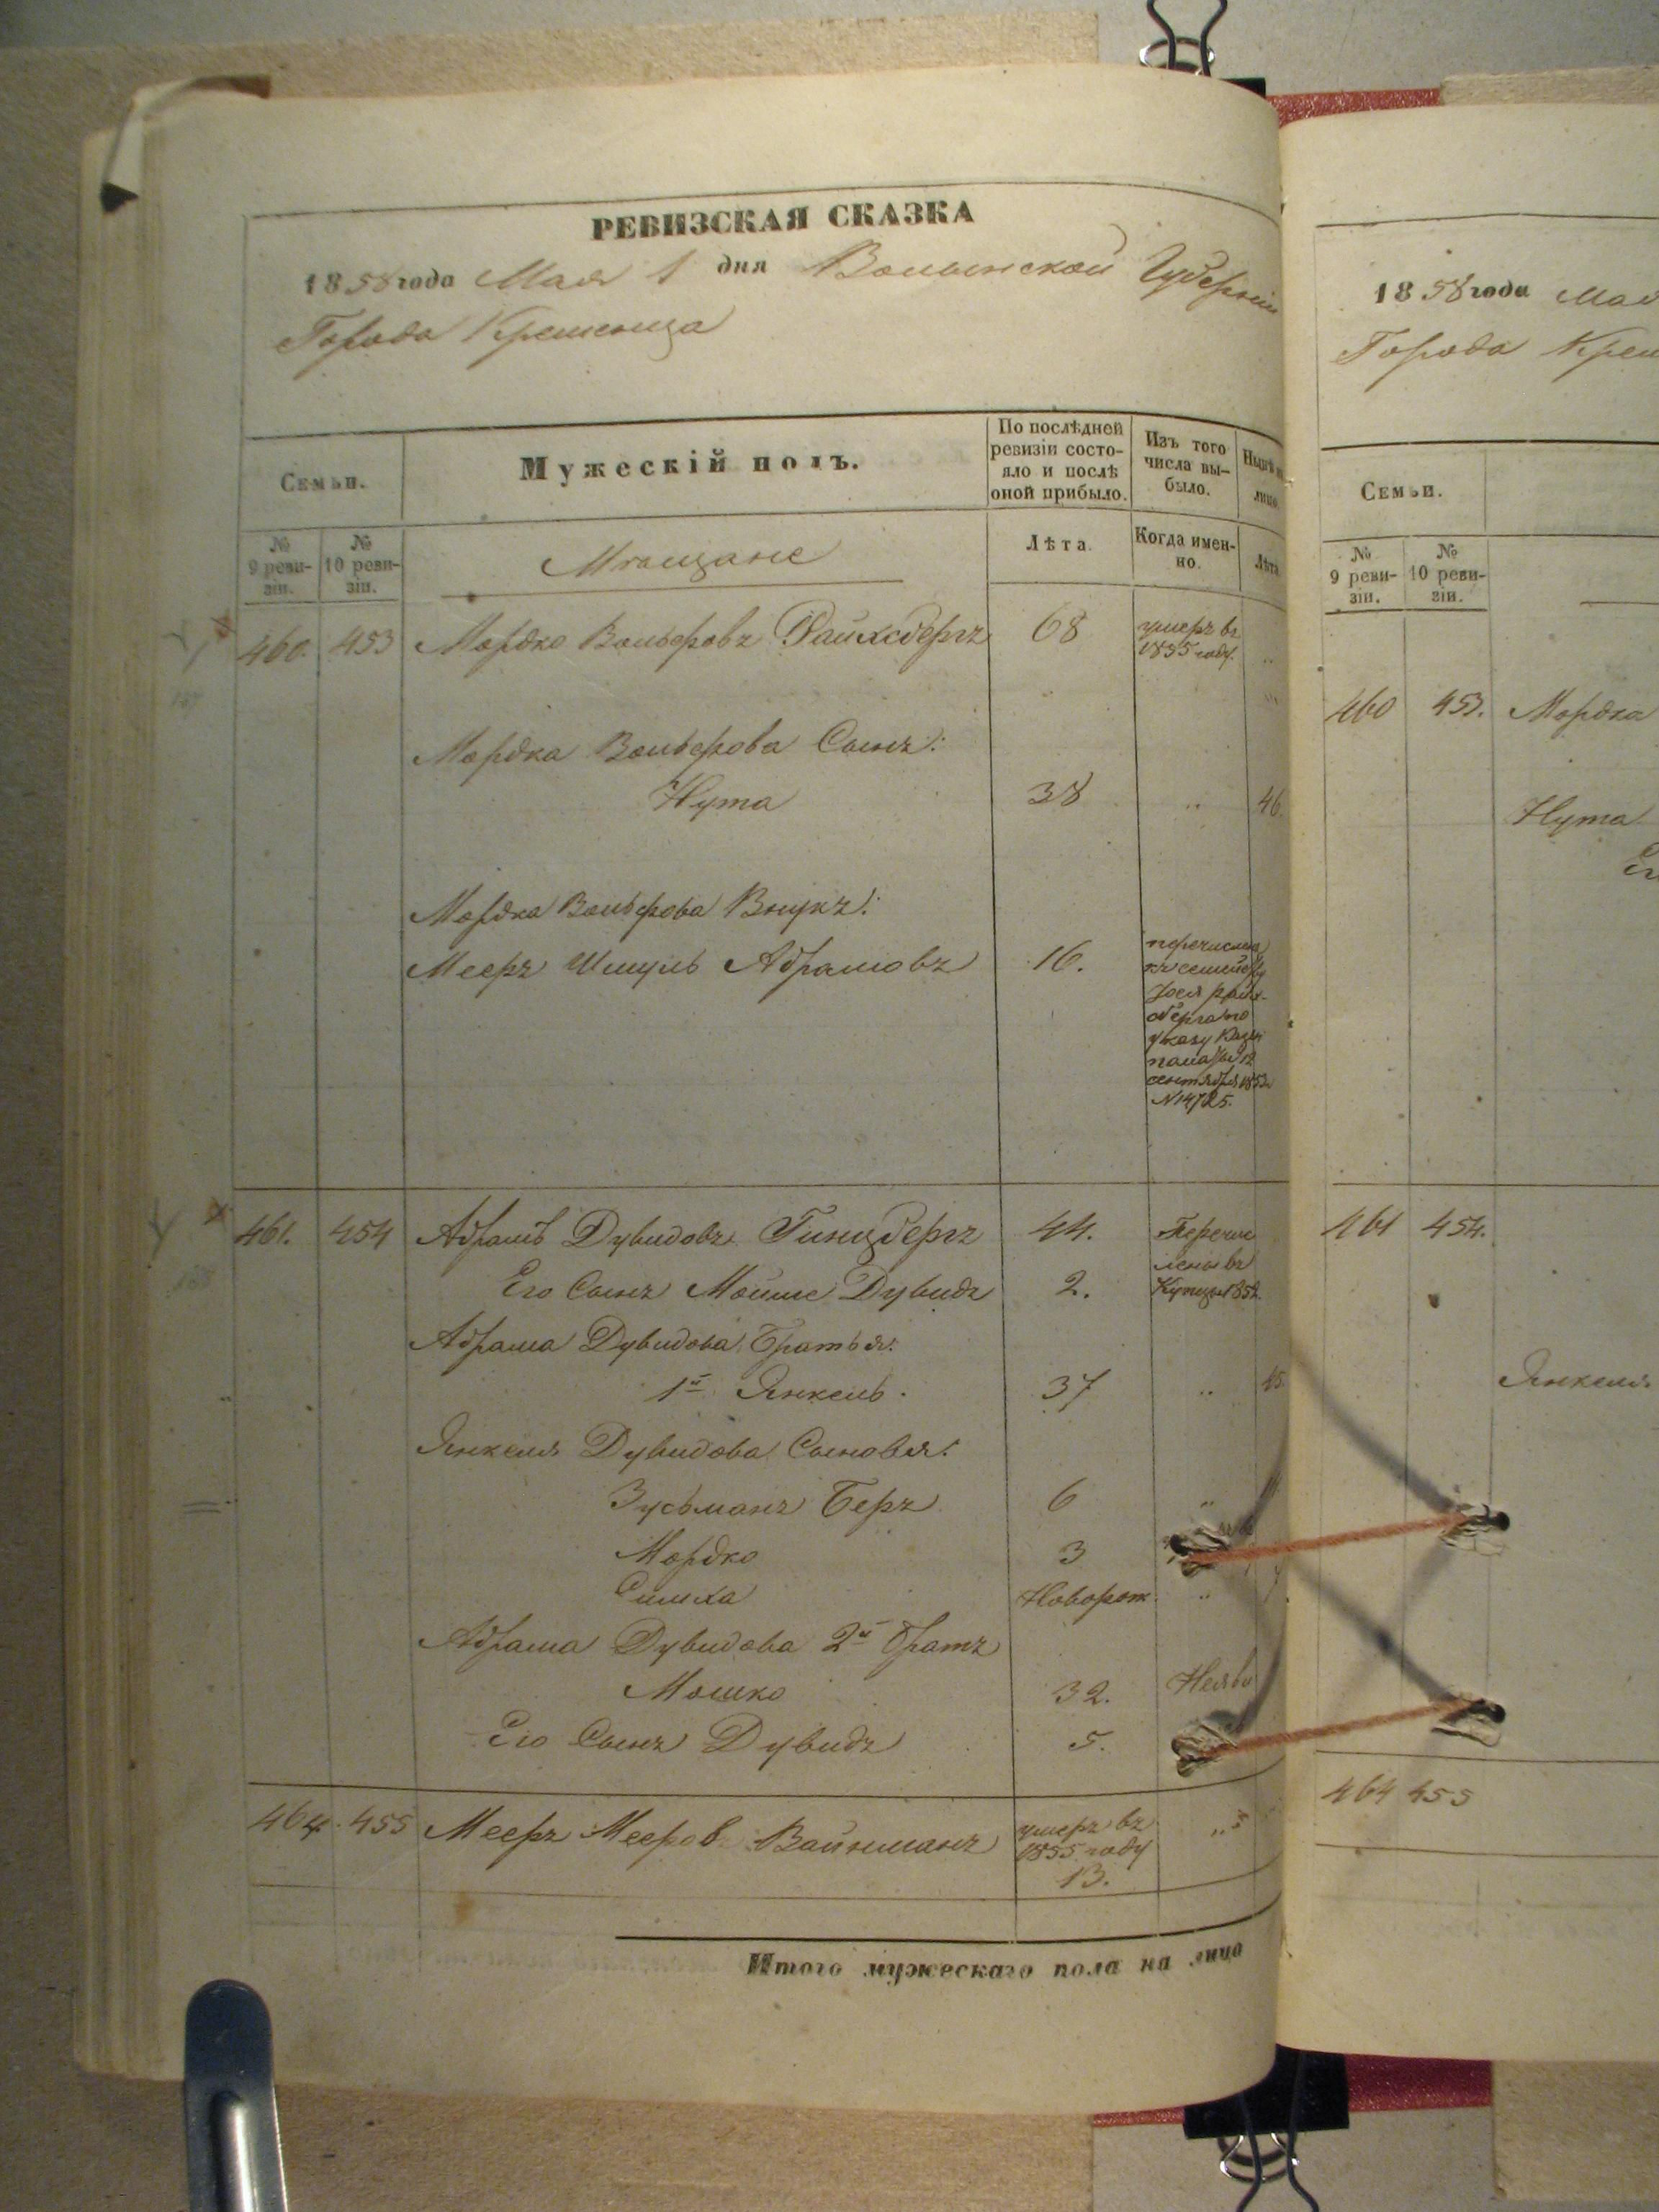 РЕВИЗСКАЯ СКАЗКА
1858 года Мая 1 дня Волынской Губерніи
Города Кременца
Семьи.
Мужескій полъ.
По послѣдней ревизіи состо-
яло и послѣ
оной прибыло.
Изъ того
числа вы-
было.
№ 9 реви-
зіи.
№ 10 реви-
зіи.
Мѣщане
Лѣта.
Когда имен-
но.
Лѣта
460. 453 Мордко Вольфовъ Райхсбергъ 68 умеръ въ
1855 году.
Мордка Вольфова Сынъ:
Нута 38 " 46.
Мордка Вольфова Внукъ:
Мееръ Шмуль Абрамовъ 16. перечислен
къ семейству
указу Казен
палаты 12
сентября 1853
N 14725.
461. 454 Абрамъ Дувидовъ Гинцбергъ 44. Перечис
лены въ
Его Сынъ Мойше Дувидъ 2. Купцы 1852.
Абрама Дувидова Братья:
1й Янкель. 37 " 45.
Янкеля Дувидова Сыновья:
Зусьманъ Беръ 6 "
Мордко 3
Симха Новорож. "
Абрама Дувидова 2й братъ
Мошко 32. Неяви
Его Сынъ Дувидъ 5.
464. 455 Мееръ Мееров Вайнманъ умеръ въ
1855 году
13.
Итого мужескаго пола на лицо
1858 года Мая
Города Крем
Семьи.
№ 9 реви-
зіи.
№ 10 реви-
зіи.
460 453. Мордка
Нута
Ег
461 454.
Янкеля
464 455